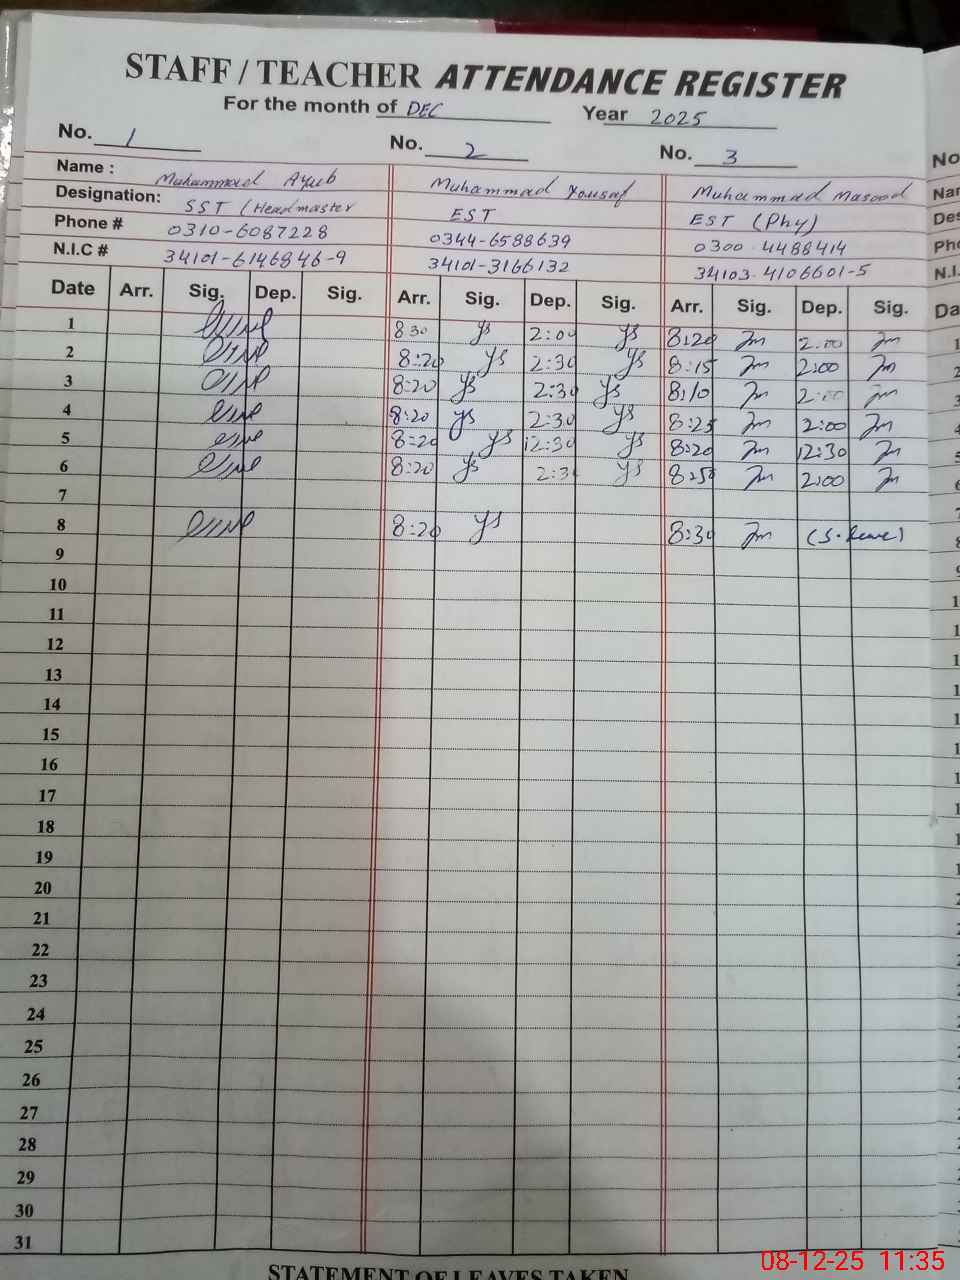 STAFF / TEACHER ATTENDANCE REGISTER
For the month of DEC Year 2025
No. 1 No. 2 No. 3 No
Name : Muhammad Ayub Muhammad Yousaf Muhammad Masood Nar
Designation: SST (Headmaster EST EST (Phy) Des
Phone # 0310-6087228 0344-6588639 0300-4488414 Pho
N.I.C # 34101-6146846-9 34101-3166132 34103-4106601-5 N.I.
Date Arr. Sig. Dep. Sig. Arr. Sig. Dep. Sig. Arr. Sig. Dep. Sig. Da
1 8 30 ys 2:00 ys 8:20 2:00
2 8:20 ys 2:30 ys 8:15 2:00
3 8:20 ys 2:30 ys 8:10 2:00
4 8:20 ys 2:30 ys 8:25 2:00
5 8:20 ys 12:30 ys 8:20 12:30
6 8:20 ys 2:30 ys 2:00
7
8 8:20 ys 8:30 (S. leave)
9
10
11
12
13
14
15
16
17
18
19
20
21
22
23
24
25
26
27
28
29
30
31
STATEMENT OF LEAVES TAKEN
08-12-25 11:35